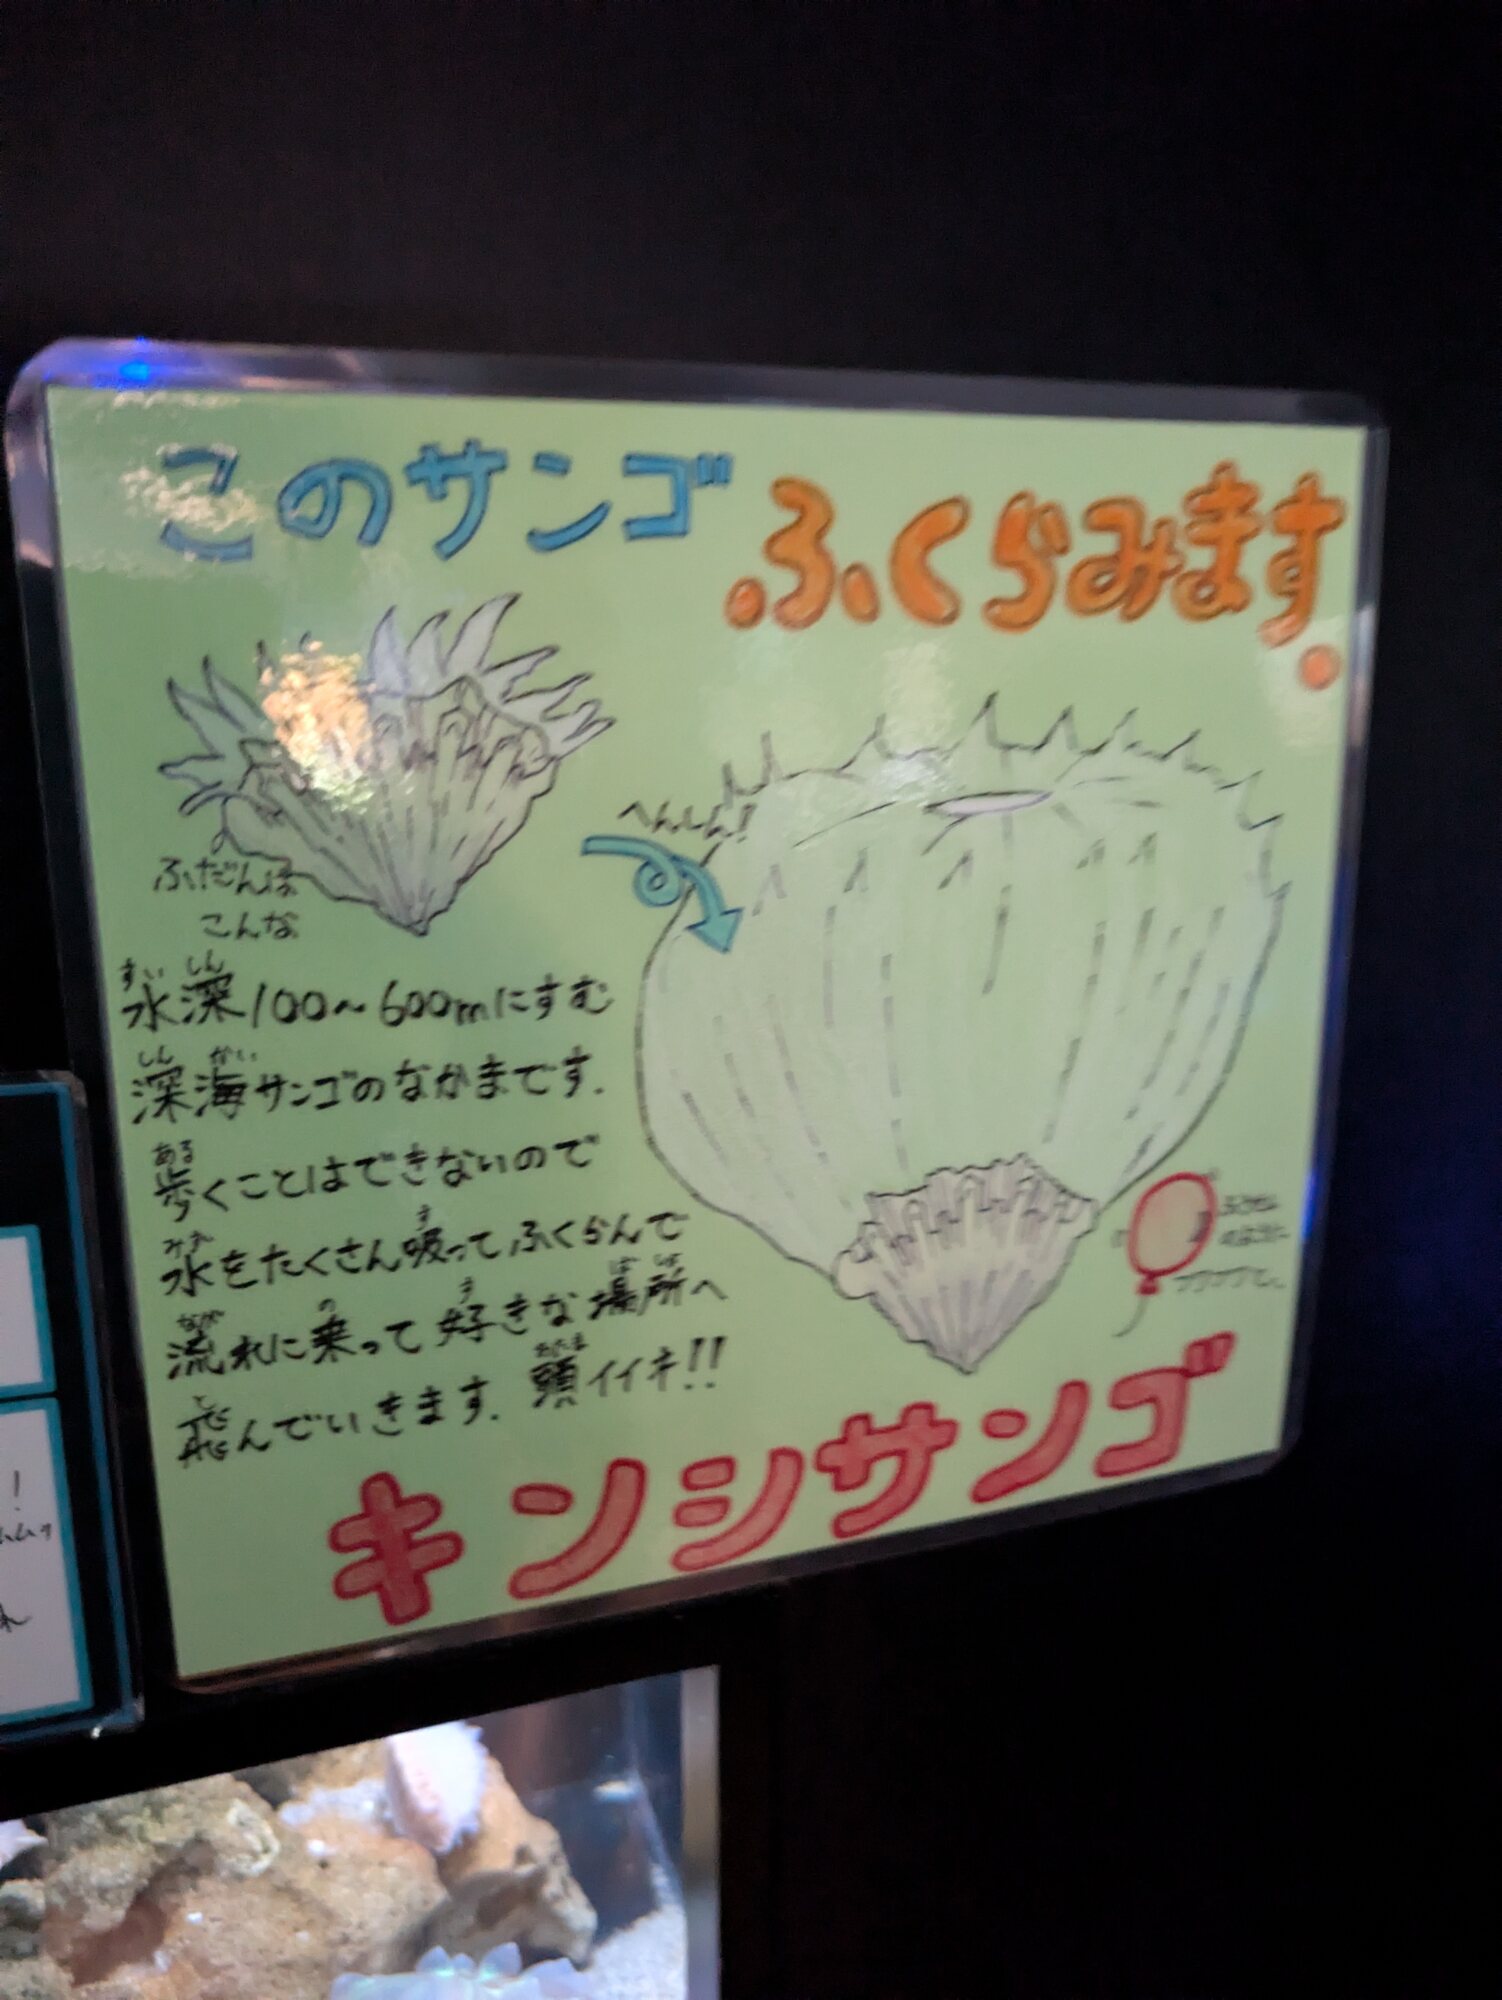 このサンゴ
ふくらみます。
へんしん!!
ふだんは
こんな
水深100～600mにすむ
深海サンゴのなかまです.
歩くことはできないので
水をたくさん吸ってふくらんで
流れに乗って好きな場所へ
飛んでいきます. 頭イイネ!!
キンシサンゴ